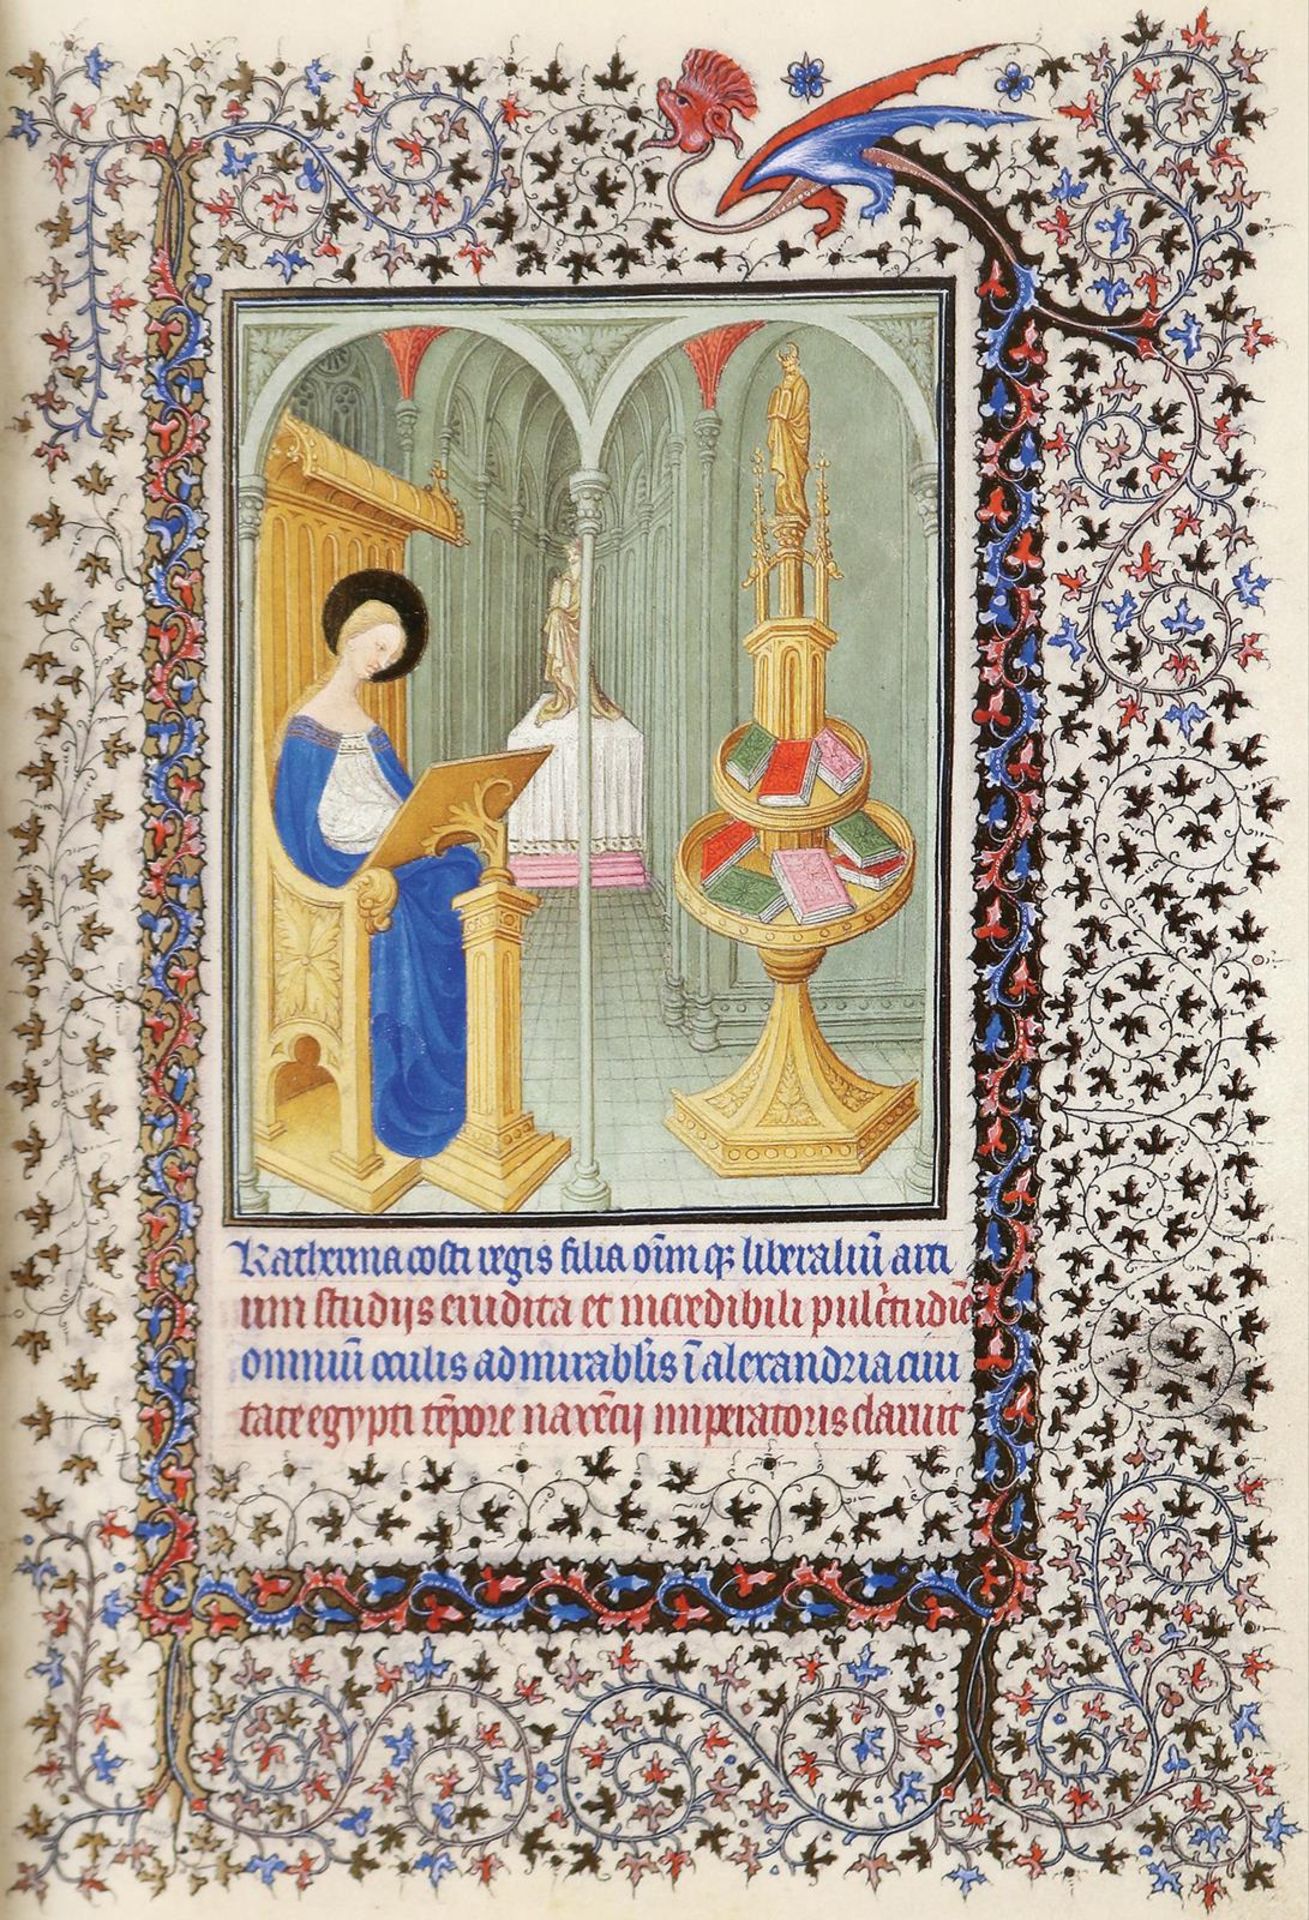 Katherina costi regis filia oīm qꝫ liberaliū arti
um studijs erudita et incredibili pulc̄tudīe
omniū oculis admirabĺis ī alexandria ciui
tate egypti tēpore maxēcij imperatoris claruit